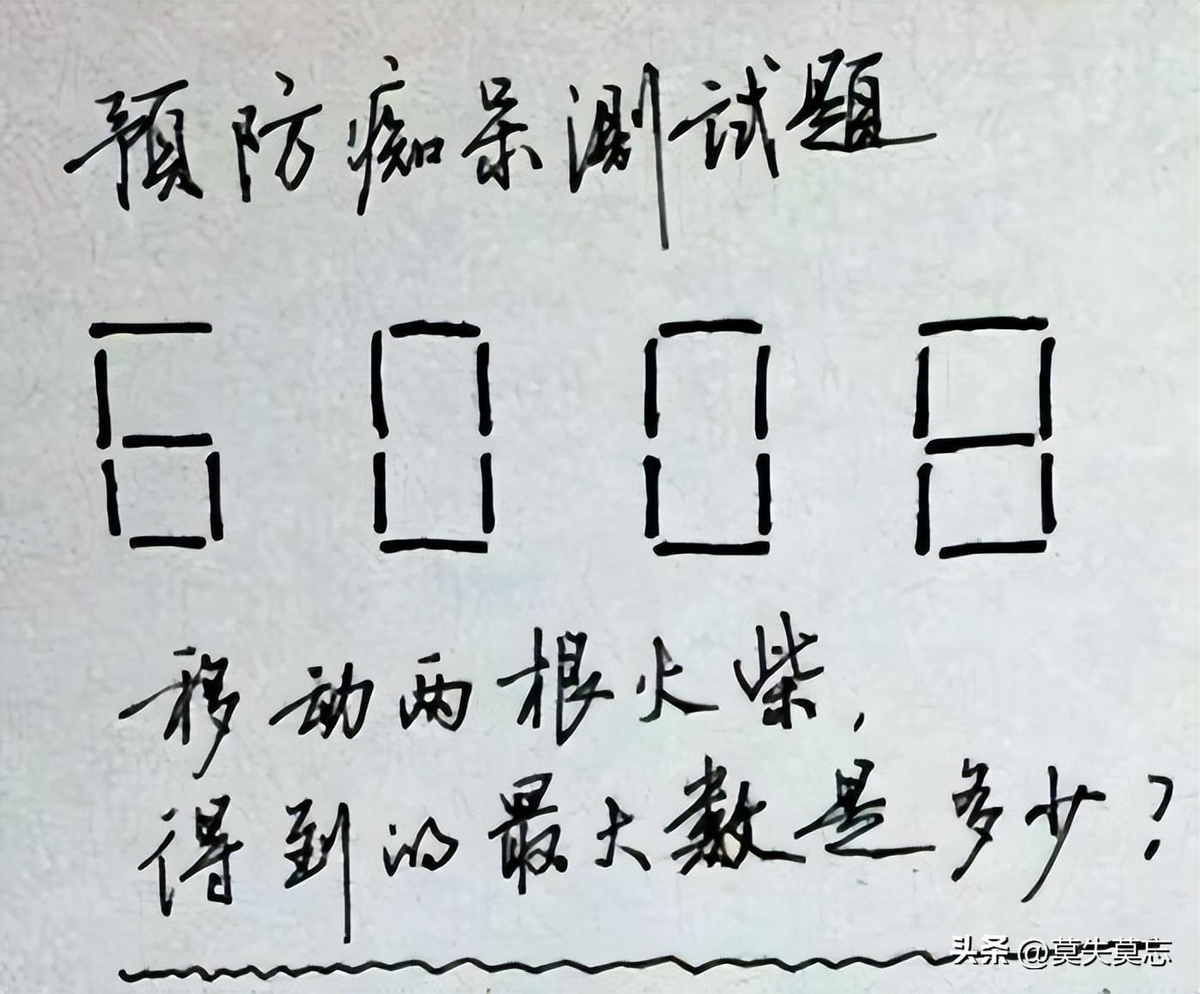 预防痴呆测试题
6008
移动两根火柴,
得到的最大数是多少?
头条 @莫失莫忘